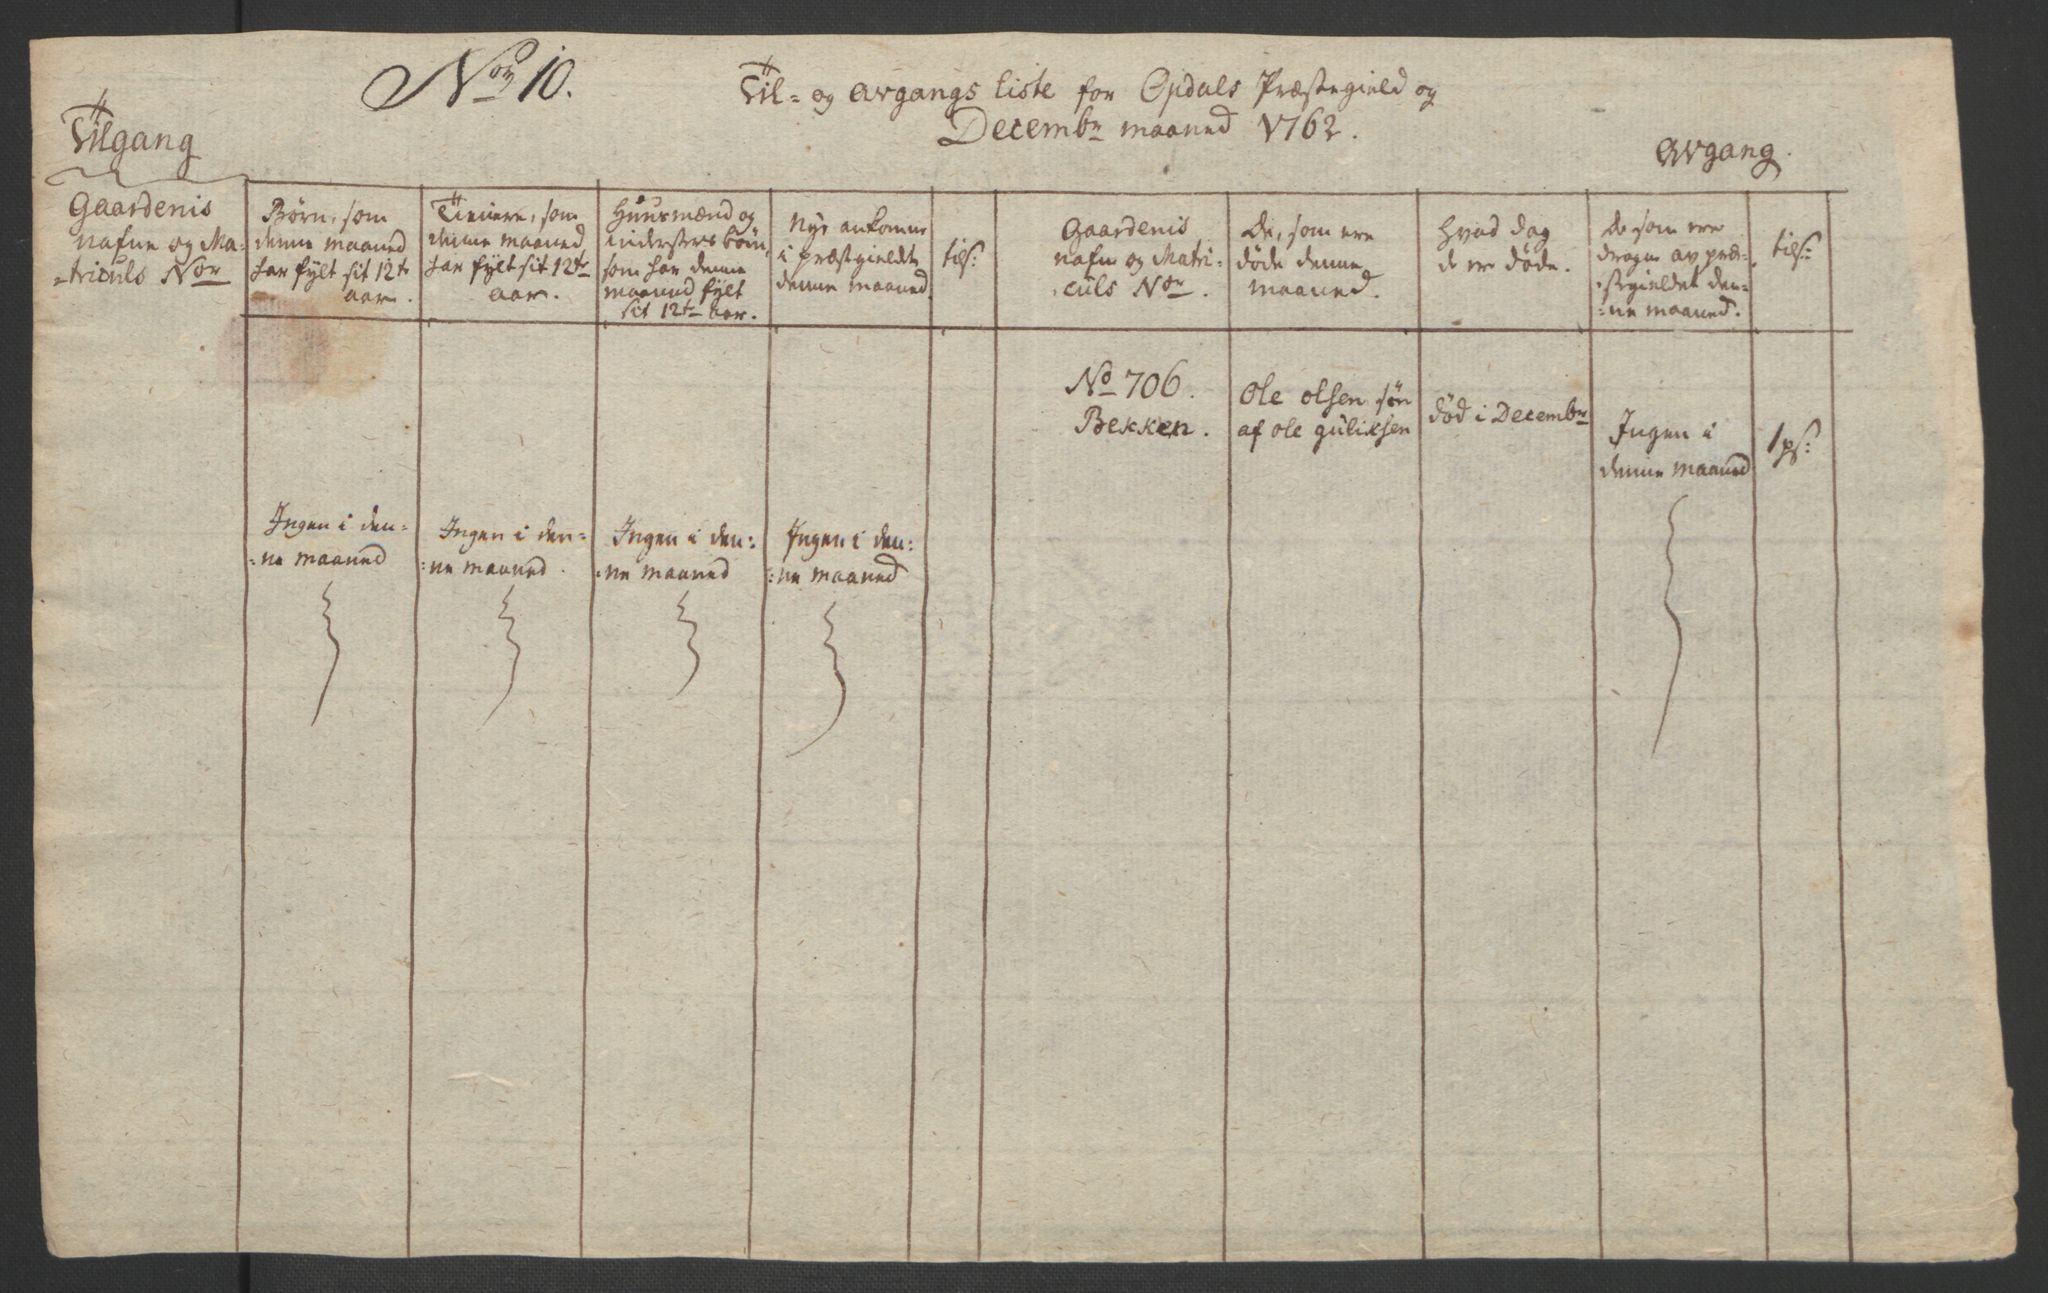 Nor 10.
Til= og avgangs liste for Opdals Præstegield og
Decembr maaned 1762.
Tilgang
avgang.
Gaardenis
nafne og Ma=
=triculs Nor
Børn, som
denne maaned
har fylt sit 12te
aar.
Tienere, som
denne maaned
har fylt sit 12te
aar.
Huusmænd og
indersters børn,
som har denne
maaned fylt
sit 12te aar.
Nys ankomne
i præstgieldet
denne maaned.
tils:
Gaardenis
nafne og Matri=
culs Nor.
De, som ere
døde denne
maaned.
Hvad dag
de ere døde.
De som ere
dragne av præ=
=stgieldet den=
=ne maaned.
tils:
No 706.
Bekken.
Ole olsen søn
af ole guliksen
død i Decembr
Ingen i
denne maaned
1 ps:
Ingen i den=
=ne maaned
Ingen i den=
=ne maaned.
Ingen i den=
=ne maaned
Ingen i den=
=ne maaned